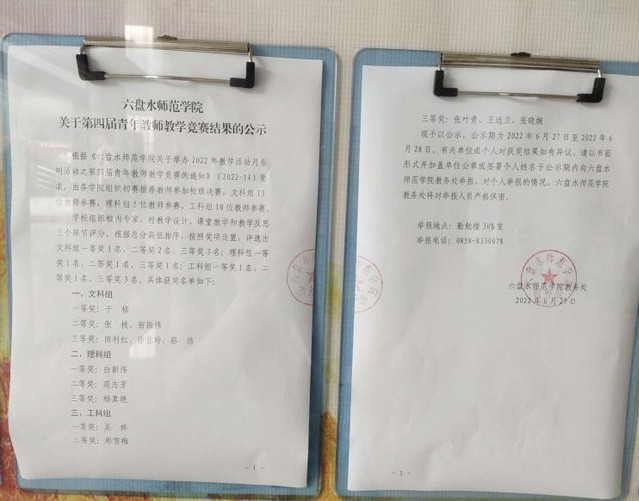 六盘水师范学院
关于第四届青年教师教学竞赛结果的公示
根据《六盘水师范学院关于举办2022年教学活动月系
列活动之第四届青年教师教学竞赛的通知》（2022-14）要
求，由各学院组织初赛推荐教师参加校级决赛，文科组13
位教师参赛，理科组5位教师参赛，工科组10位教师参赛。
学校组织校内专家，经教学设计、课堂教学和教学反思
三个环节评分，根据总分高低排序，按照奖项设置，评选出
文科组一等奖1名，二等奖2名，三等奖3名；理科组一等
奖1名，二等奖1名，三等奖1名；工科组一等奖1名，二
等奖1名，三等奖3名。具体获奖名单如下：
一、文科组
一等奖：于 榕
二等奖：张 桃、宿振伟
三等奖：田利红、 亚玲、骆 洁
二、理科组
一等奖：白新伟
二等奖：范志芳
三等奖：杨真艳
三、工科组
一等奖：吴 娇
二等奖：郑雪梅
- 1 -
三等奖：张叶贵、王远兰、张晓婉
现予以公示，公示期为2022年6月27日至2022年6
月28日。有关单位或个人对获奖结果如有异议，请以书面
形式并加盖单位公章或签署个人姓名于公示期内向六盘水
师范学院教务处举报。对个人举报的情况，六盘水师范学院
教务处将对举报人员严格保密。
举报地点：勤勉楼308室
举报电话：0858-8330078
六盘水师范学院教务处
2022年6月27日
- 2 -